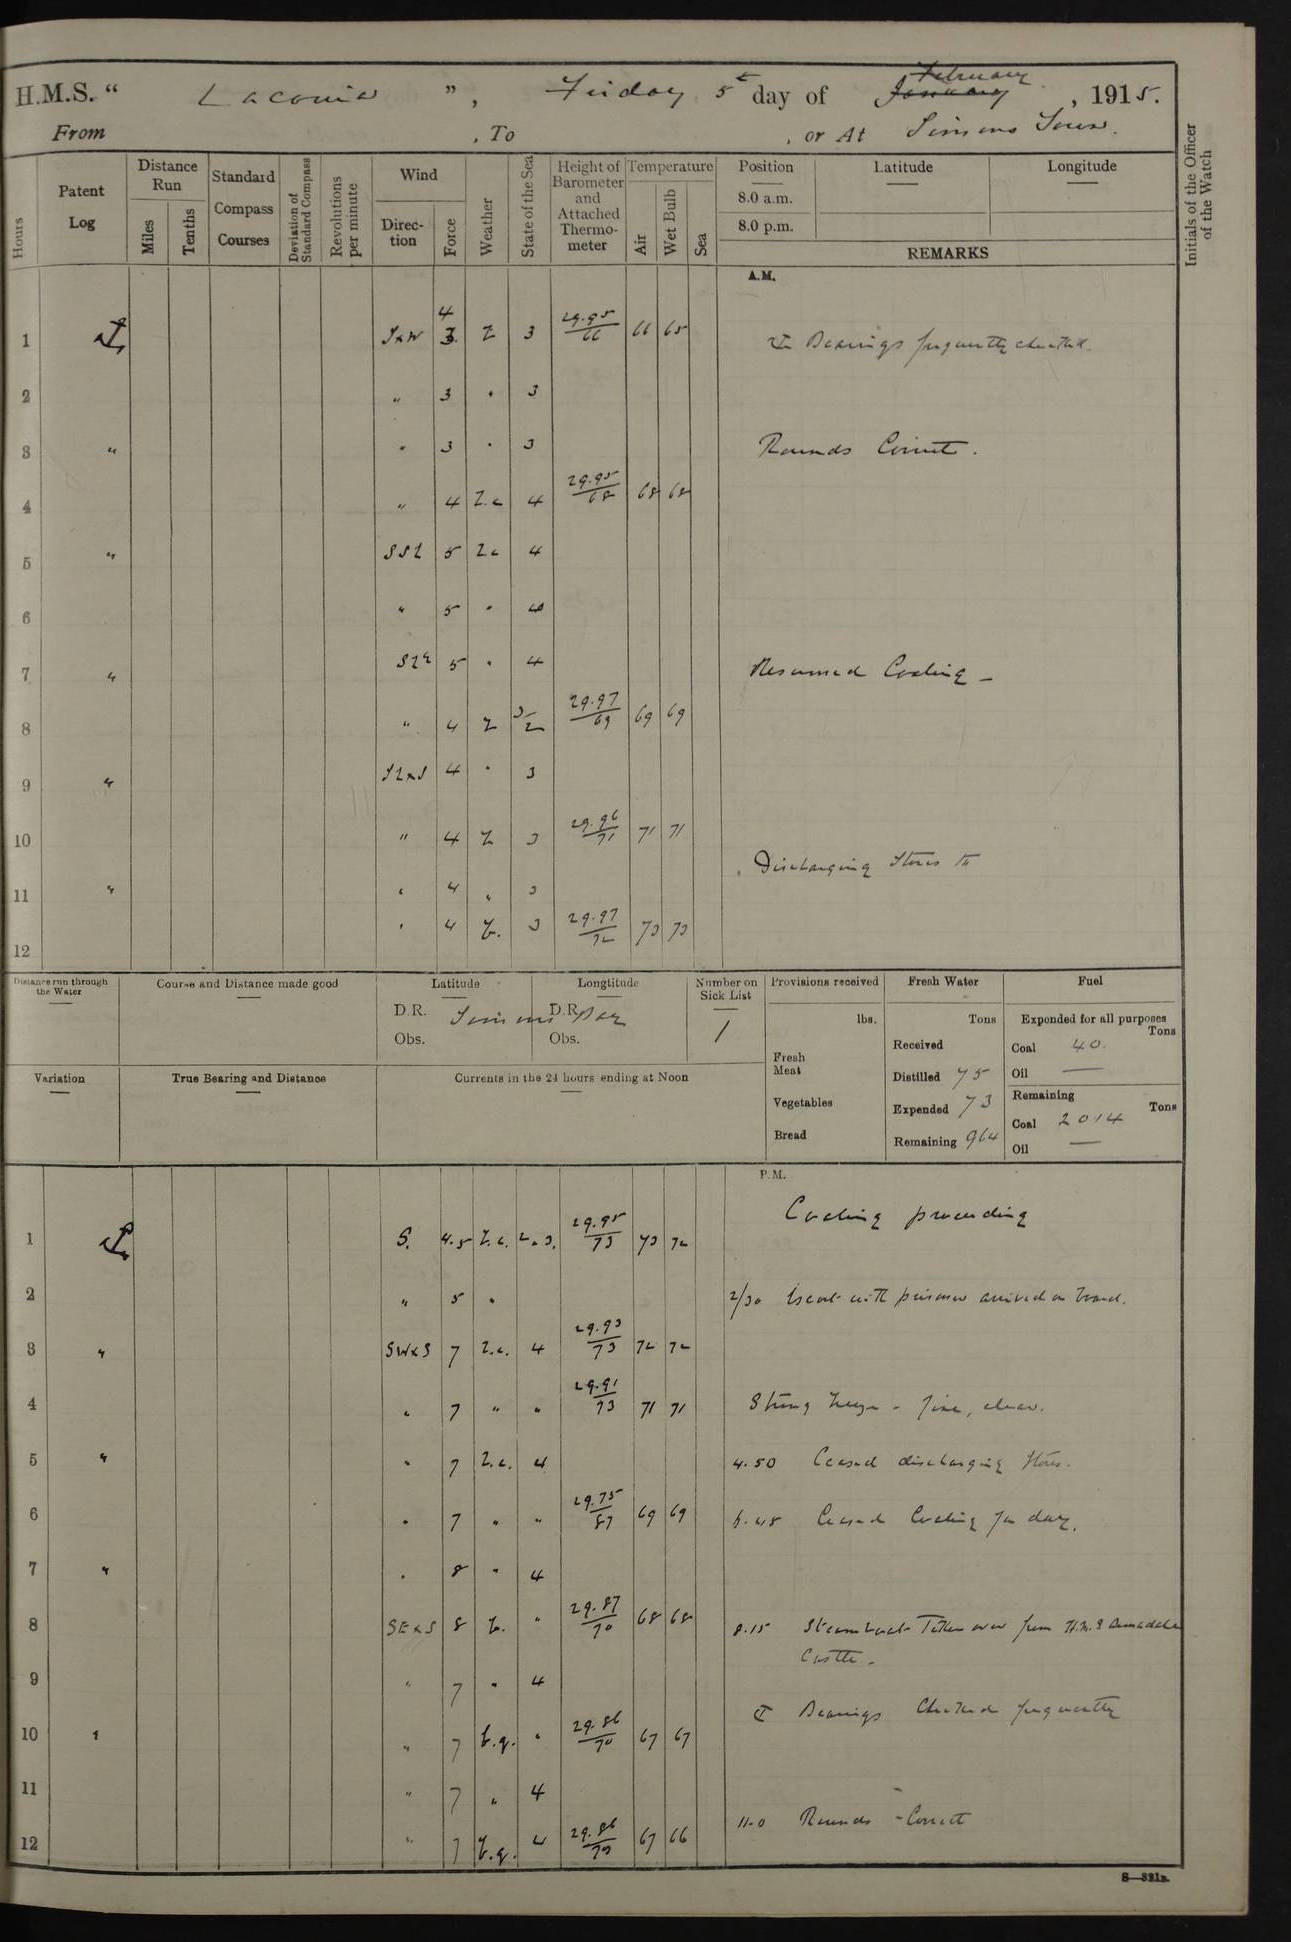 H.M.S. “ Laconia ” , Friday 5th day of January February , 1915.
From , To , or At Simons Town.
Hours
Patent Log
Distance Run
Miles
Tenths
Standard Compass Courses
Deviation of Standard Compass
Revolutions per minute
Wind
Direction
Force
Weather
State of the Sea
Height of Barometer and Attached Thermometer
Temperature
Air
Wet Bulb
Sea
Position
8.0 a.m.
8.0 p.m.
Latitude
Longitude
REMARKS
Initials of the Officer of the Watch
A.M.
1 SxW 4 3 b 3 29.95/66 66 65 Bearings frequently checked.
2 " 3 " 3
3 " " 3 " 3 Rounds Correct.
4 " 4 b.c 4 29.95/68 68 68
5 " SSE 5 bc 4
6 " 5 " 4
7 " 5 " 4 Resumed Coaling -
8 " 4 b 3/2 29.97/69 69 69
9 " SExS 4 " 3
10 " 4 b 3 29.96/71 71 71
Discharging Stores to
11 " " 4 " 3
12 " 4 b. 3 29.97/72 73 73
Distance run through the Water
Course and Distance made good
Latitude
D.R. Simons Bay
Obs.
Longtitude
D.R.
Obs.
Number on Sick List
1
Provisions received
lbs.
Fresh Meat
Vegetables
Bread
Fresh Water
Tons
Received
Distilled 75
Expended 73
Remaining 964
Fuel
Expended for all purposes
Tons
Coal 40.
Oil —
Remaining
Tons
Coal 2014
Oil —
Variation
True Bearing and Distance
Currents in the 24 hours ending at Noon
P.M.
Coaling proceeding
1 S. 4.5 b.c. 2.3. 29.95/73 73 72
2 " 5 " 2/30 Escort with prisoner arrived on board.
3 " SWxS 7 b.c. 4 29.93/73 72 72
4 " 7 " " 29.91/73 71 71 Strong breeze - fine, clear.
5 " " 7 b.c. 4 4.50 Ceased discharging Stores.
6 " 7 " " 29.75/87 69 69 Ceased Coaling for day.
7 " " 8 " 4
8 SExS 8 b. " 29.87/70 68 68 8.15 Steamboat Taken over from H.M.S Armadale
Castle -
9 " 7 " 4
Bearings Checked frequently
10 " " 7 b.q. " 29.86/70 67 67
11 " 7 " 4
11.0 Rounds - Correct
12 " 7 b.q. 4 29.86/70 67 66
S—321B.